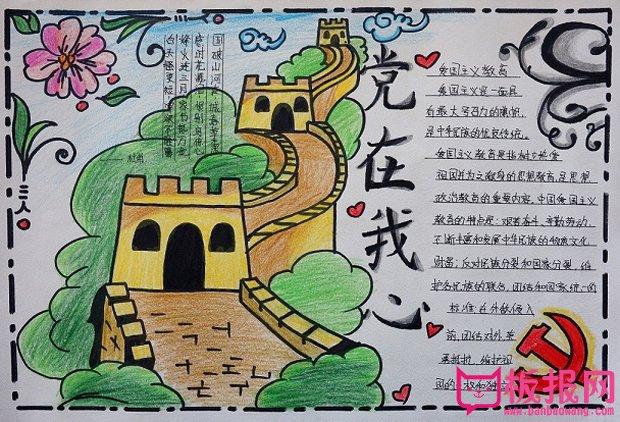 国破山河在城春草木深
感时花溅泪恨别鸟惊心
烽火连三月家书抵万金
白头搔更短浑欲不胜簪
——杜甫
党在我心
爱国主义教育
爱国主义是一面具
有最大号召力的旗帜,
是中华民族的优良传统。
爱国主义教育是指树立热爱
祖国并为之献身的思想教育,是思想
政治教育的重要内容。中国爱国主义
教育的特点是:艰苦奋斗、辛勤劳动,
不断丰富和发展中华民族的物质文化
财富;反对民族分裂和国家分裂,维
护各民族的联合、团结和国家统一的
标准;在外敌侵入
前,团结对外,英
勇抵抗,维护祖
国的主权和独
板报网
www.banbaowang.com